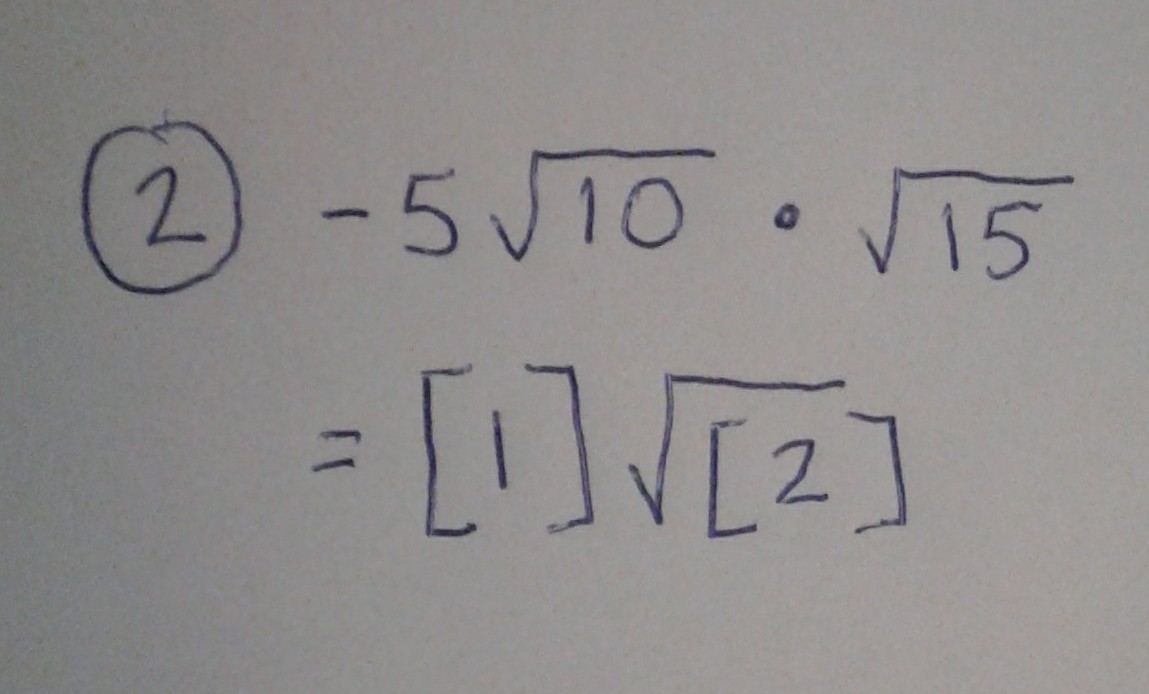 ② -5√10 · √15
= [1]√[2]